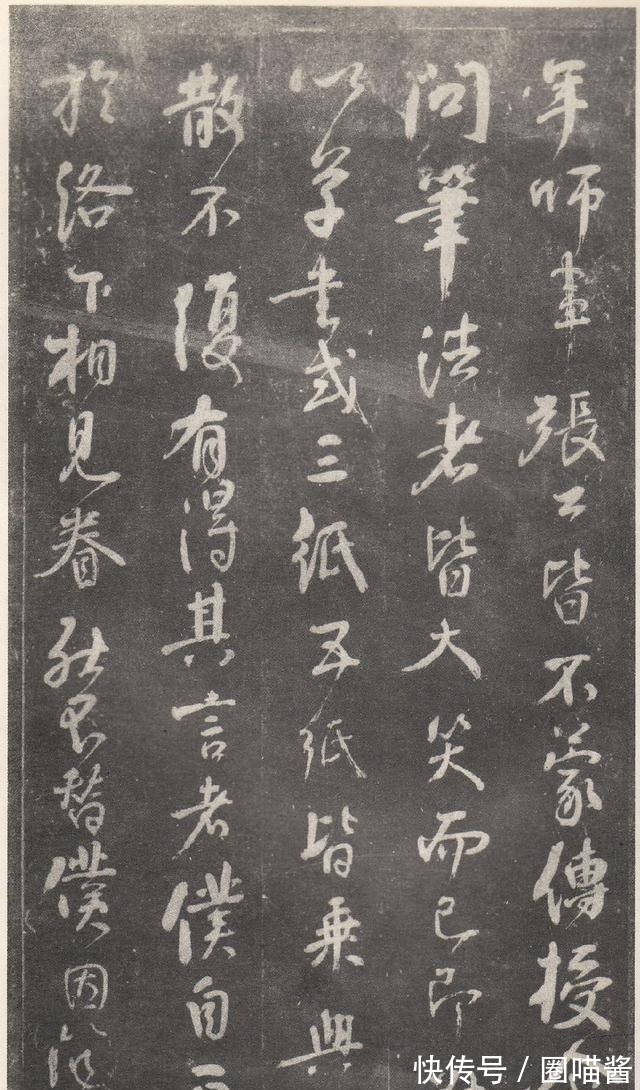 年師張公皆不蒙傳授
問筆法者皆大笑而已即
以草書或三紙五紙皆乘興
散不復有得其言者僕自再
於洛下相見眷然不替僕因
快传号 / 圈喵酱